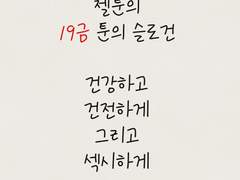 젤툰의
19금 툰의 슬로건
건강하고
건전하게
그리고
섹시하게